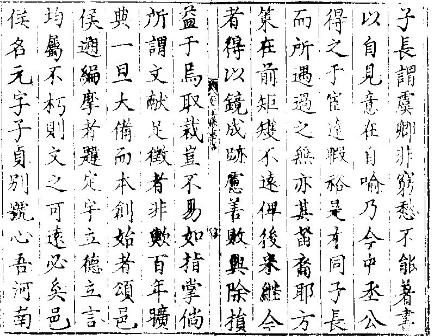 子長謂虞卿非窮愁不能著書
以自見意在自喻乃今中丞公
得之于宦遠暇裕是才同子長
而所遇過之無亦其苗裔耶方
策在前矩矱不遠俾後來繼令
者得以鏡成跡慮善敗興除損
益于焉取裁豈不易如指掌倘
所謂文献足徵者非數百年曠
典一旦大備而本創始者頌邑
侯遡編摩者題定字立德立言
均屬不朽則文之可遠必矣邑
侯名元字子貞別號心吾河南